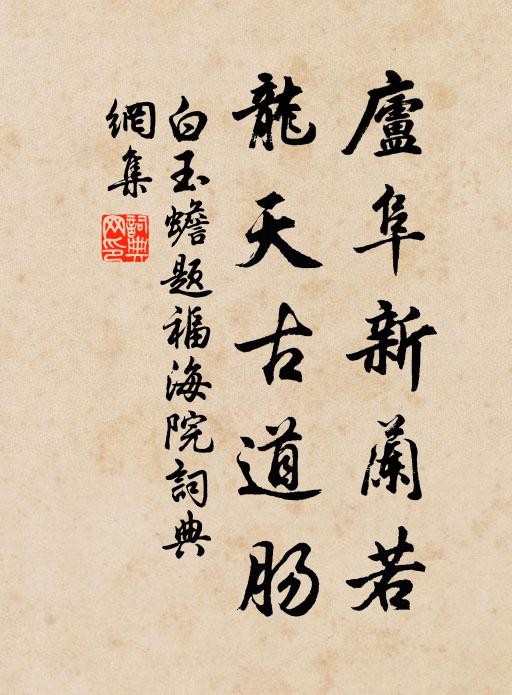 廬阜新蘭若
龍天古道肠
白玉蟾题福海院詞典
網集
詞典
网印